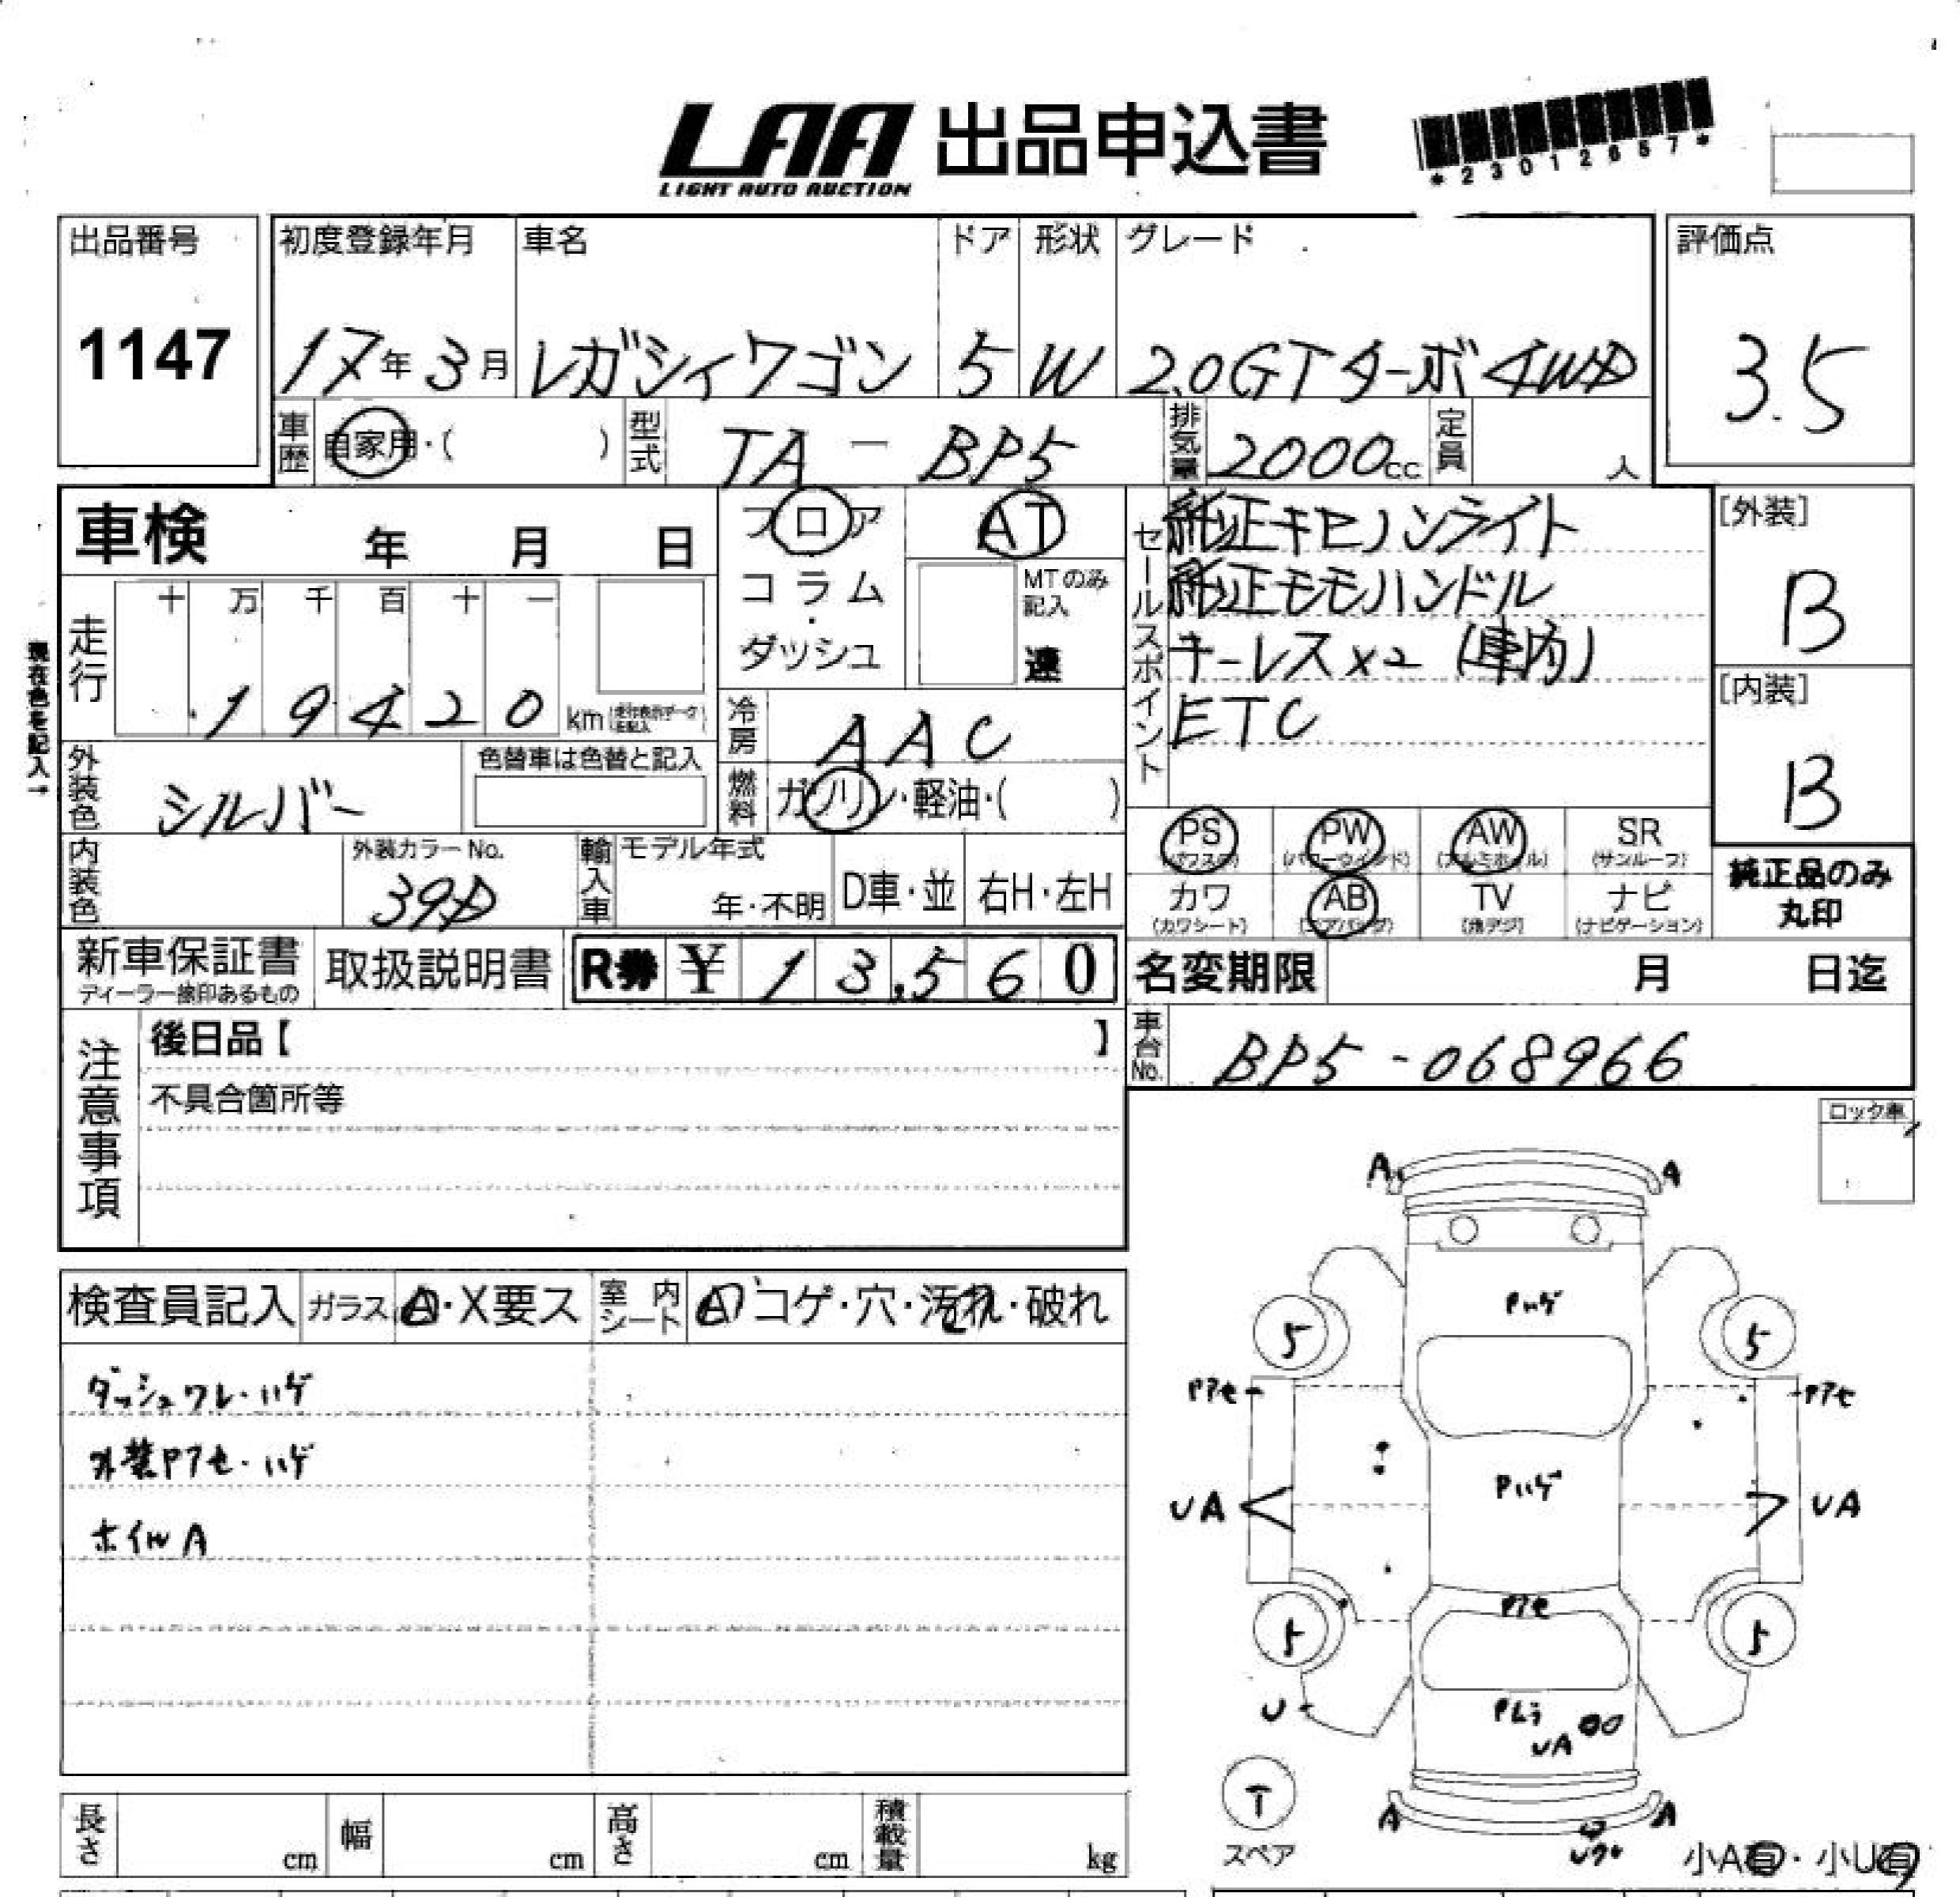 LAA 出品申込書
LIGHT AUTO AUCTION
*23012657*
出品番号 初度登録年月 車名 ドア 形状 グレード 評価点
1147 17年3月 レガシィワゴン 5 W 2.0GTターボ4WD 3.5
車歴 自家用・( ) 型式 TA-BP5 排気量 2000cc 定員 人
車検 年 月 日
フロア AT
コラム・ダッシュ
MTのみ記入 速
セールスポイント
純正キセノンライト
純正モモハンドル
キーレス×2 (車内)
ETC
[外装]
B
[内装]
B
現在色を記入→
走行 十 万 千 百 十 一
19420 km
冷房 AAC
外装色 シルバー 色替車は色替と記入
燃料 ガソリン・軽油・( )
内装色 外装カラーNo. 39D
輸入車 モデル年式 年・不明 D車・並 右H・左H
PS (パワステ) PW (パワーウインド) AW (アルミホイル) SR (サンルーフ)
カワ (カワシート) AB (エアバッグ) TV (地デジ) ナビ (ナビゲーション)
純正品のみ
丸印
新車保証書 ディーラー捺印あるもの 取扱説明書 R券 ¥13,560
名変期限 月 日迄
車台No. BP5-068966
注意事項
後日品【 】
不具合箇所等
ロック車
検査員記入 ガラス A・X要ス 室内シート A コゲ・穴・汚れ・破れ
ダッシュワレ・ハゲ
外装Pアセ・ハゲ
ホイルA
A A
Pハゲ
5 5
Pアセ Pアセ
Pハゲ
UA UA
Pアセ
5 5
U Pムラ
UA
T
スペア
A A
小A有・小U有
長さ cm 幅 cm 高さ cm 積載量 kg